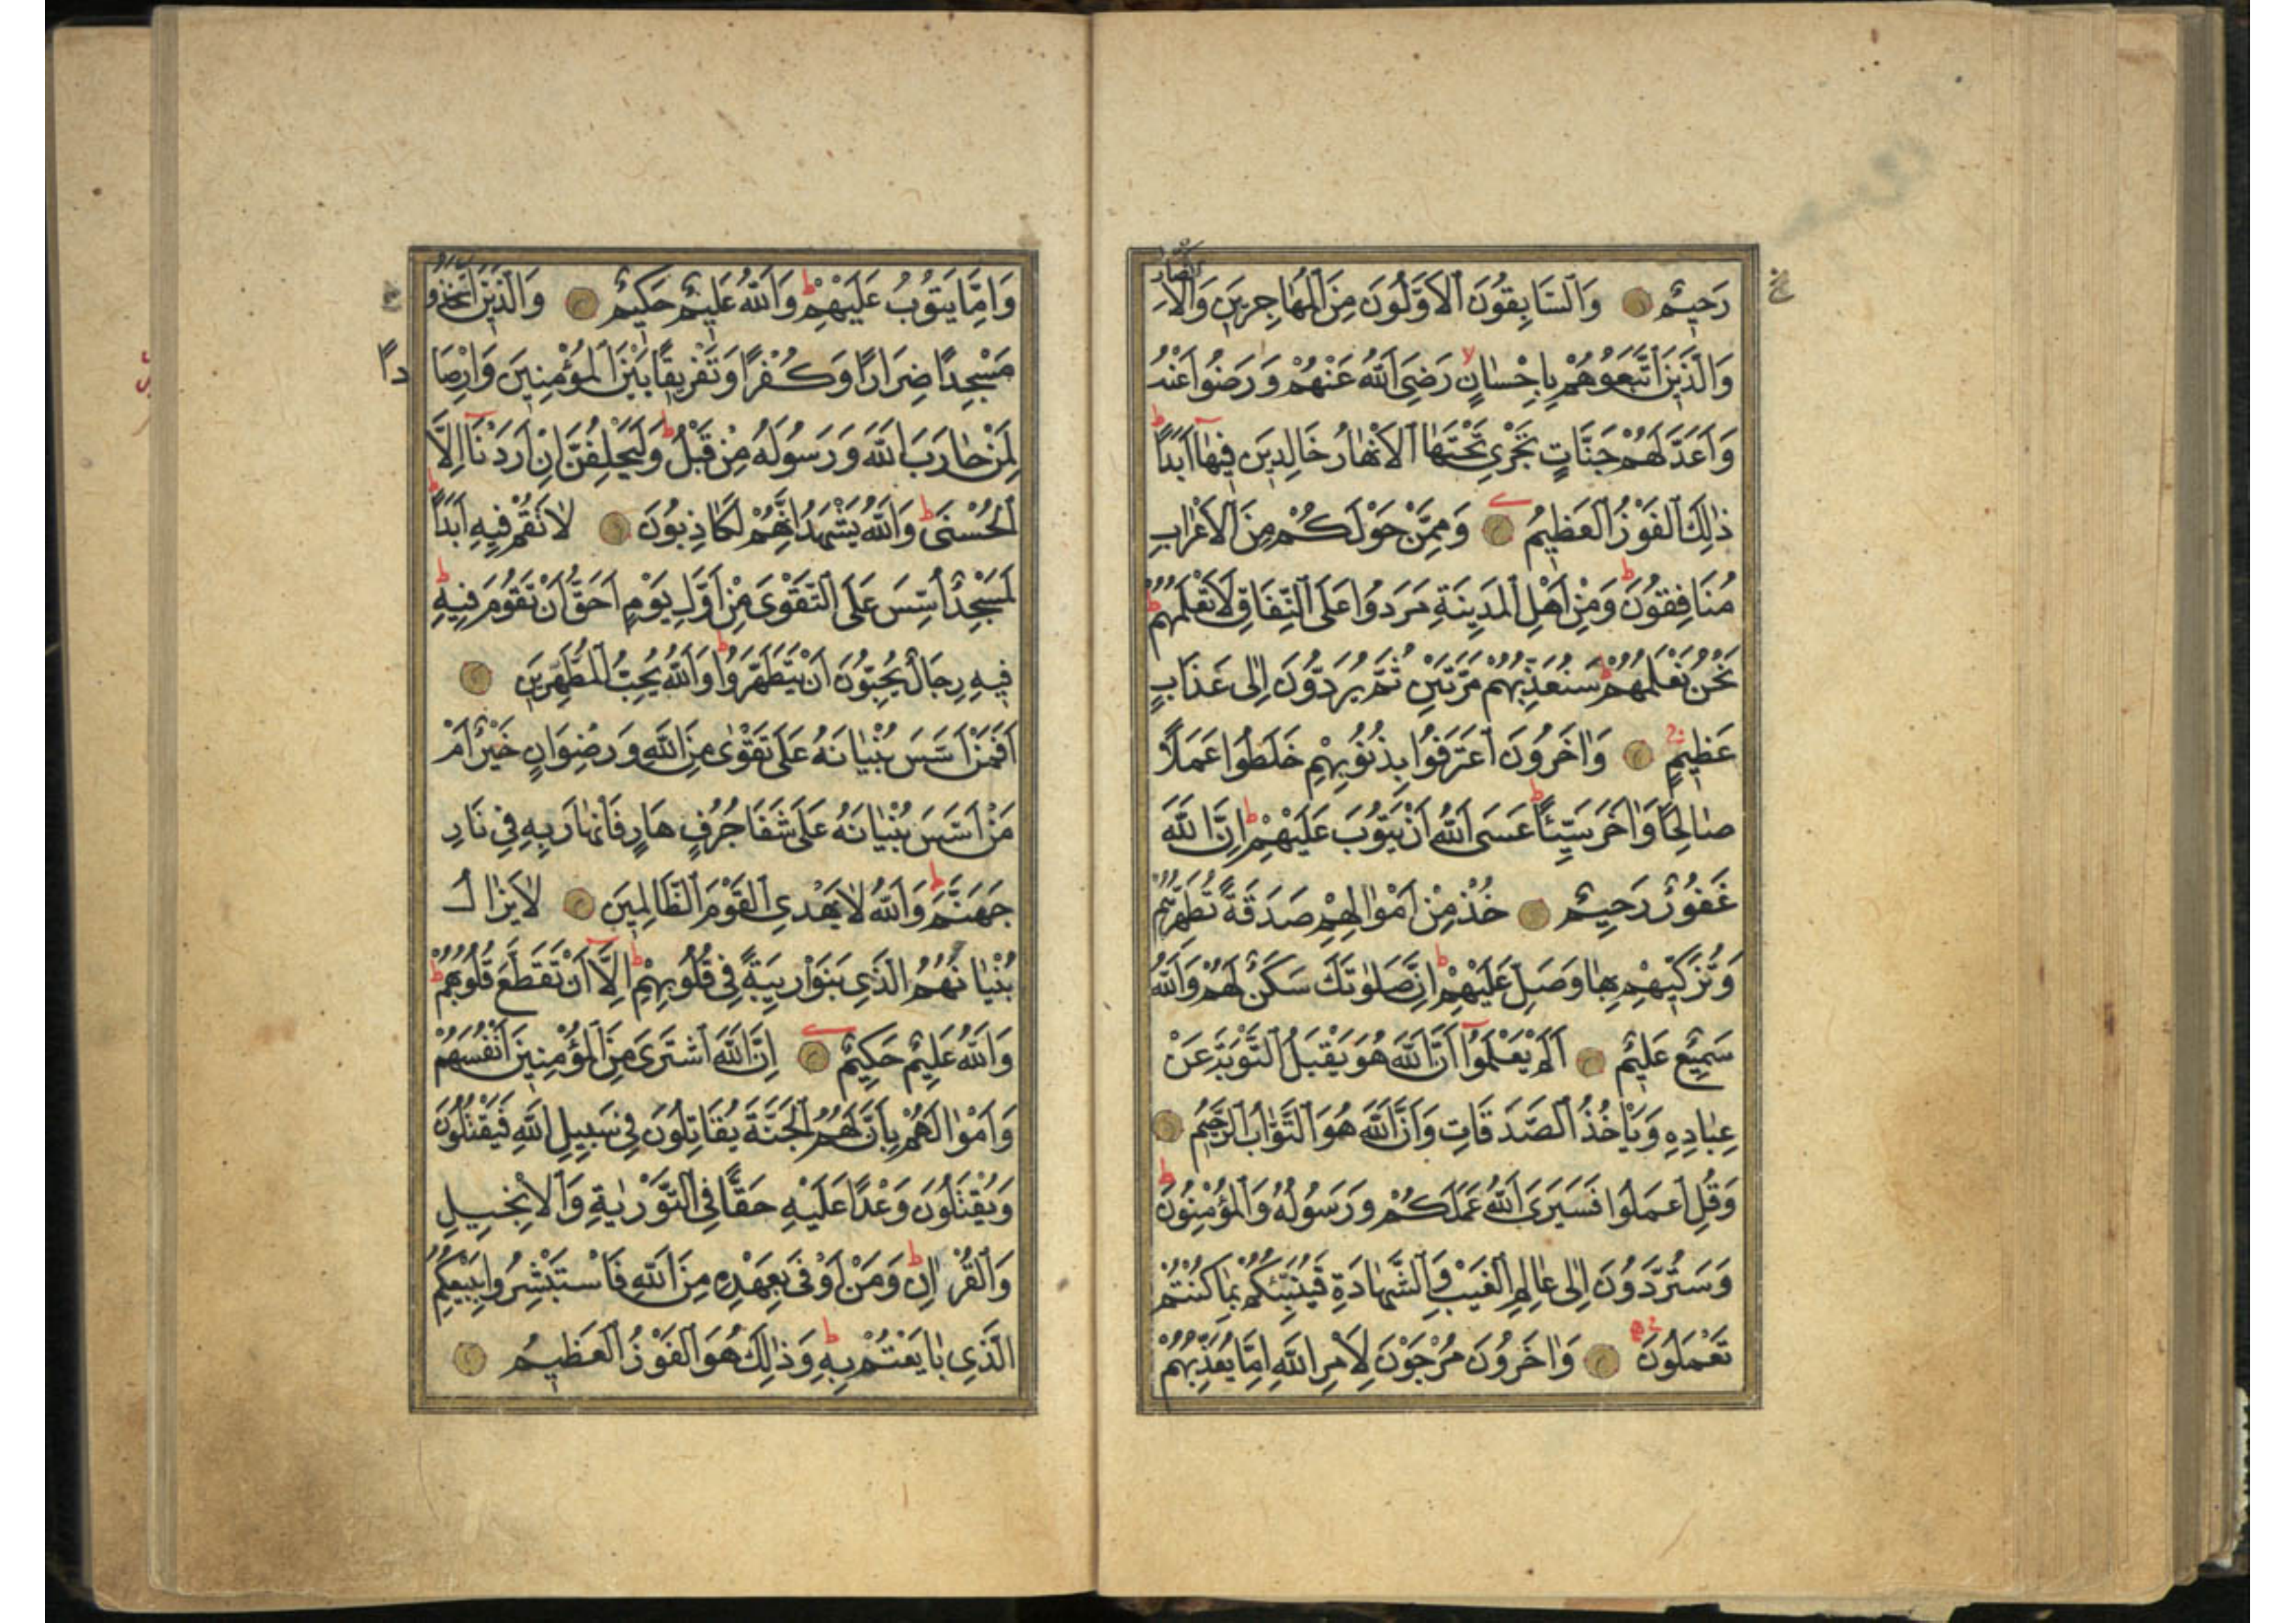 رَحِيمٌ وَالسَّابِقُونَ الْاَوَّلُونَ مِنَ الْمُهَاجِرِينَ وَالْاَنْصَارِ
وَالَّذِينَ اتَّبَعُوهُمْ بِاِحْسَانٍ رَضِيَ اللّٰهُ عَنْهُمْ وَرَضُوا عَنْهُ
وَاَعَدَّ لَهُمْ جَنَّاتٍ تَجْرِي تَحْتَهَا الْاَنْهَارُ خَالِدِينَ فِيهَا اَبَدًا
ذٰلِكَ الْفَوْزُ الْعَظِيمُ وَمِمَّنْ حَوْلَكُمْ مِنَ الْاَعْرَابِ
مُنَافِقُونَ وَمِنْ اَهْلِ الْمَدِينَةِ مَرَدُوا عَلَى النِّفَاقِ لَا تَعْلَمُهُمْ
نَحْنُ نَعْلَمُهُمْ سَنُعَذِّبُهُمْ مَرَّتَيْنِ ثُمَّ يُرَدُّونَ اِلٰى عَذَابٍ
عَظِيمٍ وَاٰخَرُونَ اعْتَرَفُوا بِذُنُوبِهِمْ خَلَطُوا عَمَلًا
صَالِحًا وَاٰخَرَ سَيِّئًا عَسَى اللّٰهُ اَنْ يَتُوبَ عَلَيْهِمْ اِنَّ اللّٰهَ
غَفُورٌ رَحِيمٌ خُذْ مِنْ اَمْوَالِهِمْ صَدَقَةً تُطَهِّرُهُمْ
وَتُزَكِّيهِمْ بِهَا وَصَلِّ عَلَيْهِمْ اِنَّ صَلٰوتَكَ سَكَنٌ لَهُمْ وَاللّٰهُ
سَمِيعٌ عَلِيمٌ اَلَمْ يَعْلَمُوا اَنَّ اللّٰهَ هُوَ يَقْبَلُ التَّوْبَةَ عَنْ
عِبَادِهِ وَيَاْخُذُ الصَّدَقَاتِ وَاَنَّ اللّٰهَ هُوَ التَّوَّابُ الرَّحِيمُ
وَقُلِ اعْمَلُوا فَسَيَرَى اللّٰهُ عَمَلَكُمْ وَرَسُولُهُ وَالْمُؤْمِنُونَ
وَسَتُرَدُّونَ اِلٰى عَالِمِ الْغَيْبِ وَالشَّهَادَةِ فَيُنَبِّئُكُمْ بِمَا كُنْتُمْ
تَعْمَلُونَ وَاٰخَرُونَ مُرْجَوْنَ لِاَمْرِ اللّٰهِ اِمَّا يُعَذِّبُهُمْ
وَاِمَّا يَتُوبُ عَلَيْهِمْ وَاللّٰهُ عَلِيمٌ حَكِيمٌ وَالَّذِينَ اتَّخَذُوا
مَسْجِدًا ضِرَارًا وَكُفْرًا وَتَفْرِيقًا بَيْنَ الْمُؤْمِنِينَ وَاِرْصَادًا
لِمَنْ حَارَبَ اللّٰهَ وَرَسُولَهُ مِنْ قَبْلُ وَلَيَحْلِفُنَّ اِنْ اَرَدْنَا اِلَّا
الْحُسْنَى وَاللّٰهُ يَشْهَدُ اِنَّهُمْ لَكَاذِبُونَ لَا تَقُمْ فِيهِ اَبَدًا
لَمَسْجِدٌ اُسِّسَ عَلَى التَّقْوَى مِنْ اَوَّلِ يَوْمٍ اَحَقُّ اَنْ تَقُومَ فِيهِ
فِيهِ رِجَالٌ يُحِبُّونَ اَنْ يَتَطَهَّرُوا وَاللّٰهُ يُحِبُّ الْمُطَّهِّرِينَ
اَفَمَنْ اَسَّسَ بُنْيَانَهُ عَلَى تَقْوٰى مِنَ اللّٰهِ وَرِضْوَانٍ خَيْرٌ اَمْ
مَنْ اَسَّسَ بُنْيَانَهُ عَلَى شَفَا جُرُفٍ هَارٍ فَانْهَارَ بِهِ فِي نَارِ
جَهَنَّمَ وَاللّٰهُ لَا يَهْدِي الْقَوْمَ الظَّالِمِينَ لَا يَزَالُ
بُنْيَانُهُمُ الَّذِي بَنَوْا رِيبَةً فِي قُلُوبِهِمْ اِلَّا اَنْ تَقَطَّعَ قُلُوبُهُمْ
وَاللّٰهُ عَلِيمٌ حَكِيمٌ اِنَّ اللّٰهَ اشْتَرَى مِنَ الْمُؤْمِنِينَ اَنْفُسَهُمْ
وَاَمْوَالَهُمْ بِاَنَّ لَهُمُ الْجَنَّةَ يُقَاتِلُونَ فِي سَبِيلِ اللّٰهِ فَيَقْتُلُونَ
وَيُقْتَلُونَ وَعْدًا عَلَيْهِ حَقًّا فِي التَّوْرٰيةِ وَالْاِنْجِيلِ
وَالْقُرْاٰنِ وَمَنْ اَوْفَى بِعَهْدِهِ مِنَ اللّٰهِ فَاسْتَبْشِرُوا بِبَيْعِكُمُ
الَّذِي بَايَعْتُمْ بِهِ وَذٰلِكَ هُوَ الْفَوْزُ الْعَظِيمُ